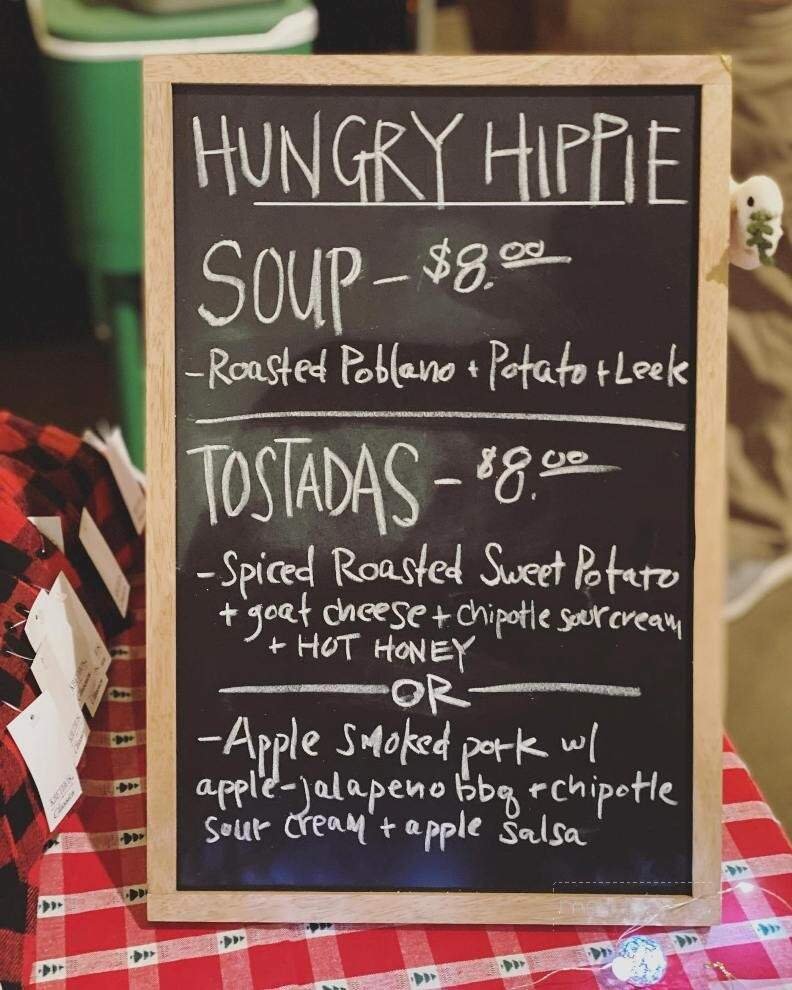 HUNGRY HIPPIE
SOUP - $8.00
- Roasted Poblano + Potato + Leek
TOSTADAS - $8.00
- Spiced Roasted Sweet Potato
+ goat cheese + chipotle sour cream
+ HOT HONEY
OR
- Apple Smoked pork w/
apple-jalapeno bbq + chipotle
sour cream + apple salsa